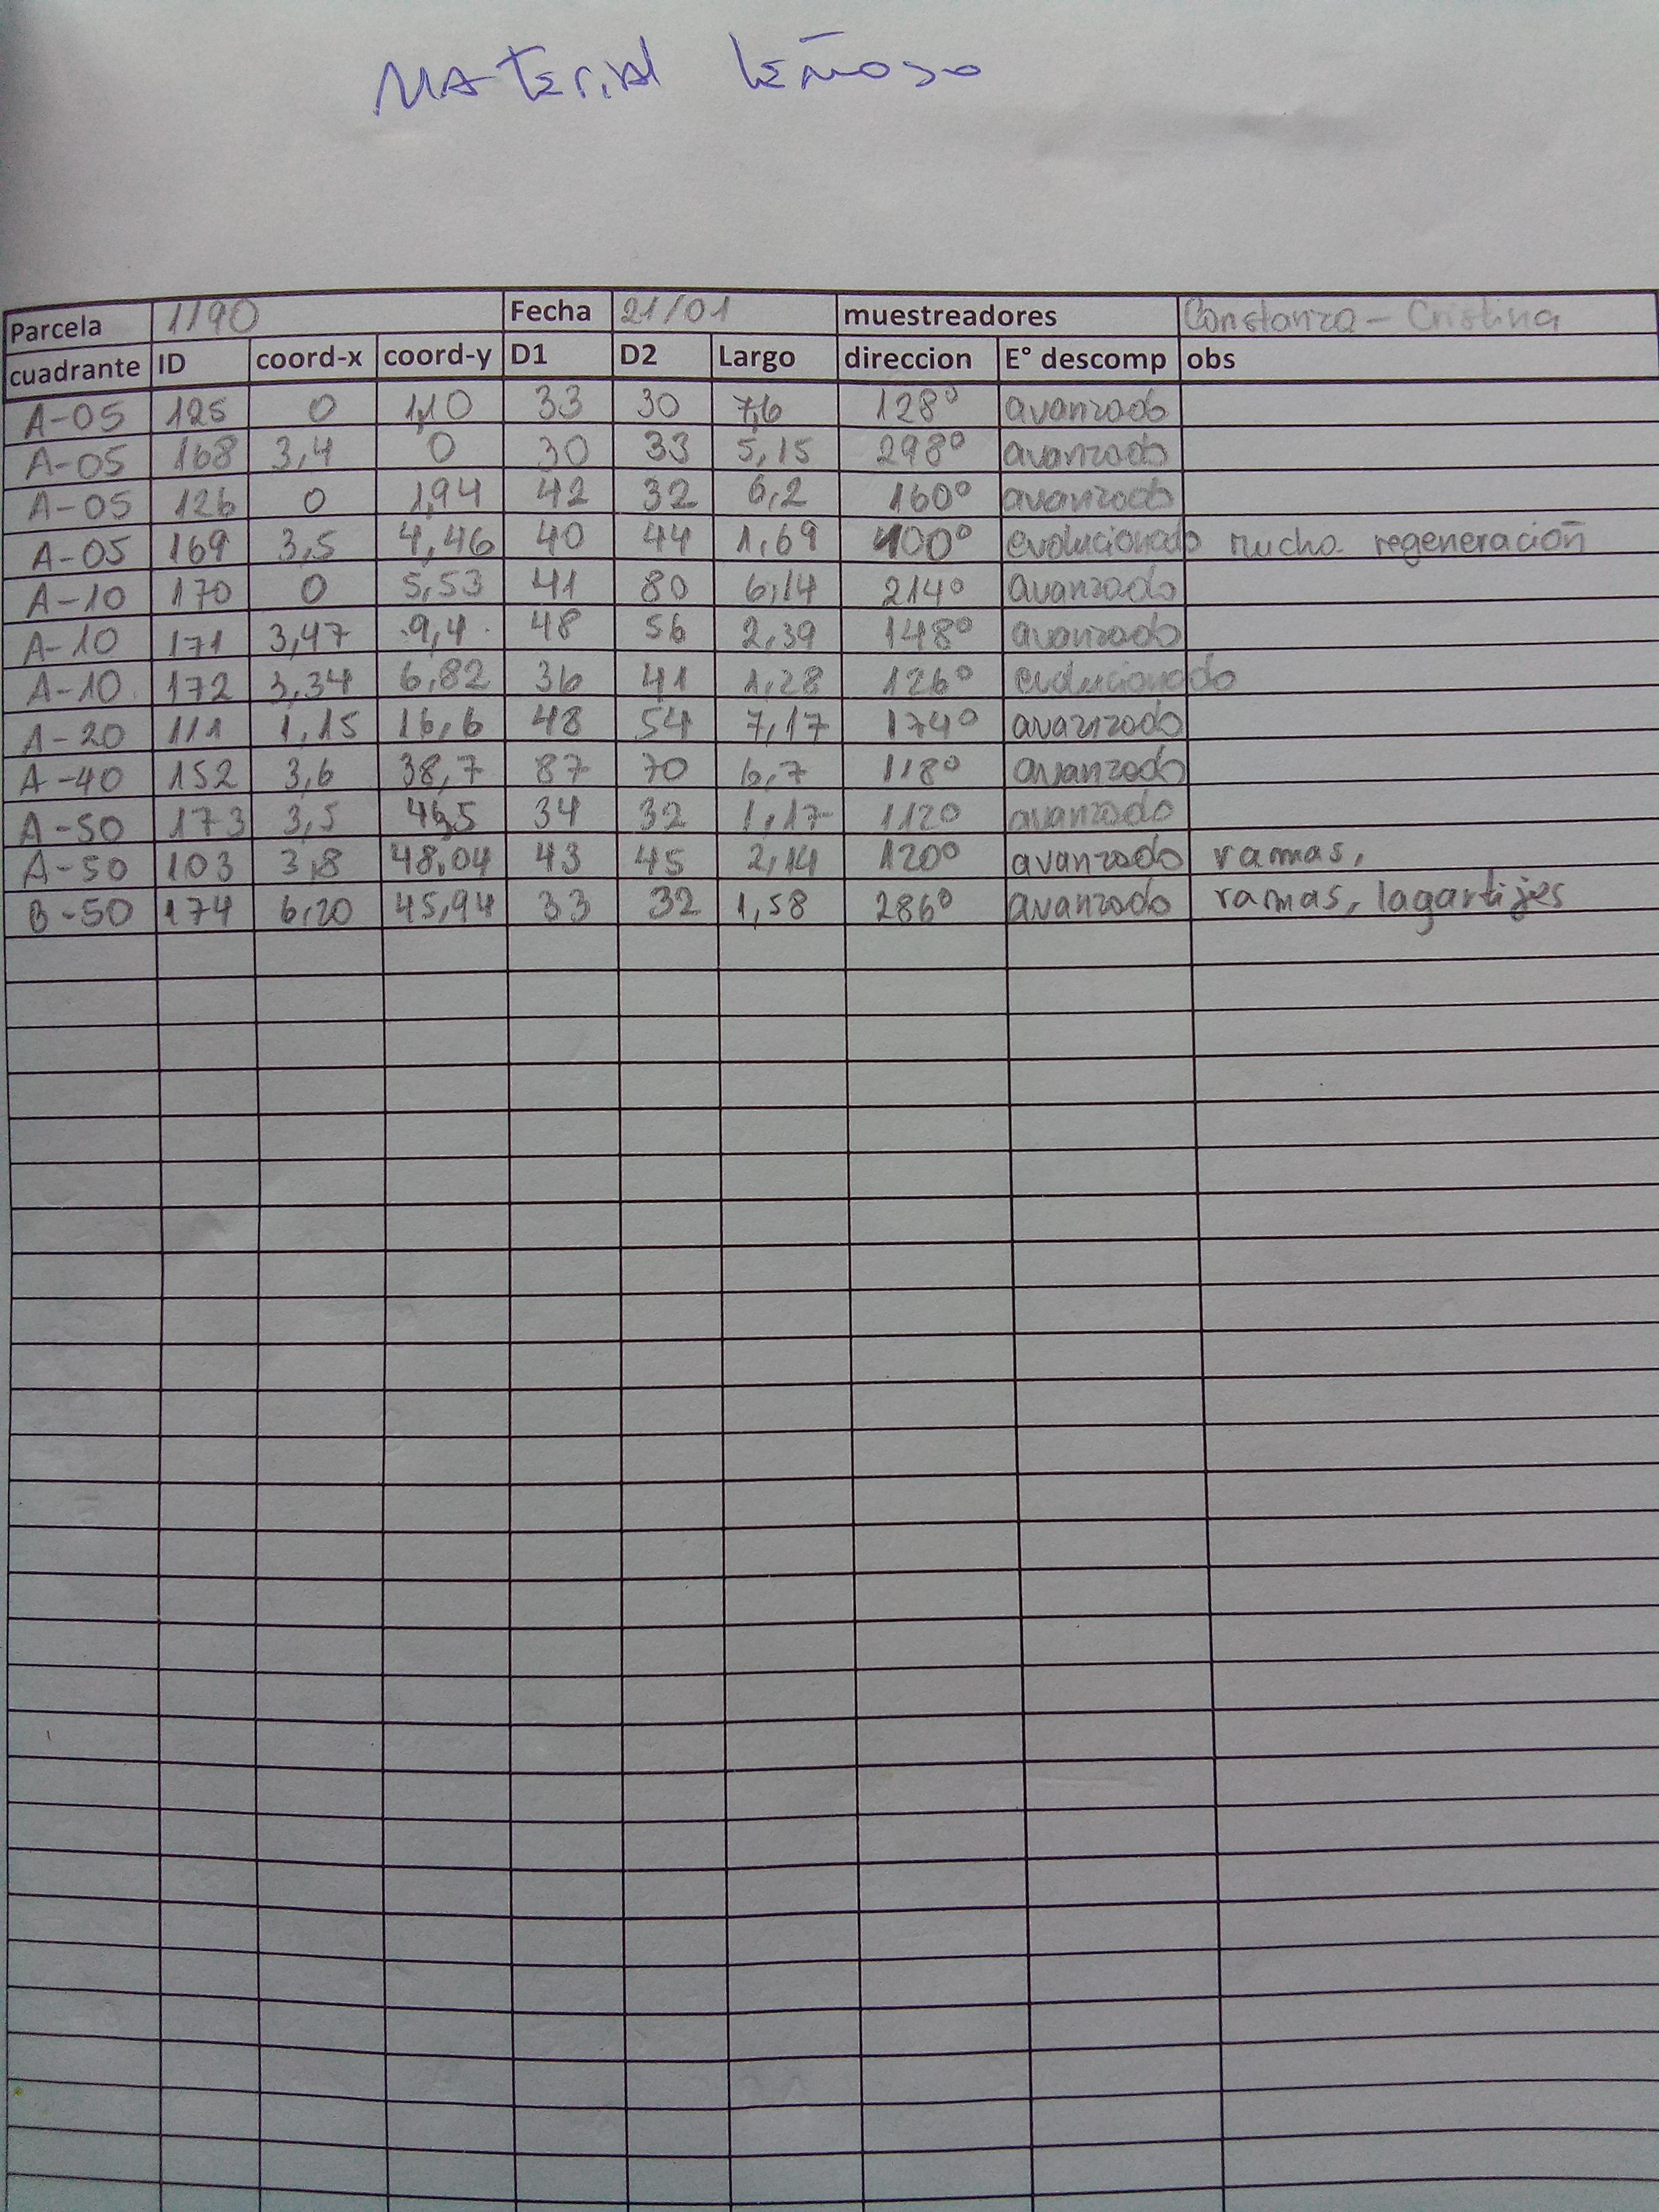 Material leñoso
Parcela 1/90 Fecha 21/01 muestreadores Constanza - Cristina
cuadrante ID coord-x coord-y D1 D2 Largo direccion E° descomp obs
A-05 125 0 1,10 33 30 7,6 128° avanzado
A-05 168 3,4 0 30 33 5,15 298° avanzado
A-05 126 0 1,94 42 32 6,2 160° avanzado
A-05 169 3,5 4,46 40 44 1,69 100° evolucionado mucha regeneración
A-10 170 0 5,53 41 80 6,14 214° avanzado
A-10 171 3,47 9,4 48 56 2,39 148° avanzado
A-10 172 3,34 6,82 36 41 1,28 126° evolucionado
A-20 111 1,15 16,6 48 54 7,17 174° avanzado
A-40 152 3,6 38,7 87 70 6,7 118° avanzado
A-50 173 3,5 34 32 1,17 112° avanzado
A-50 103 3,8 48,04 43 45 2,14 120° avanzado ramas,
B-50 174 6,20 45,94 33 32 1,58 286° avanzado ramas, lagartijes